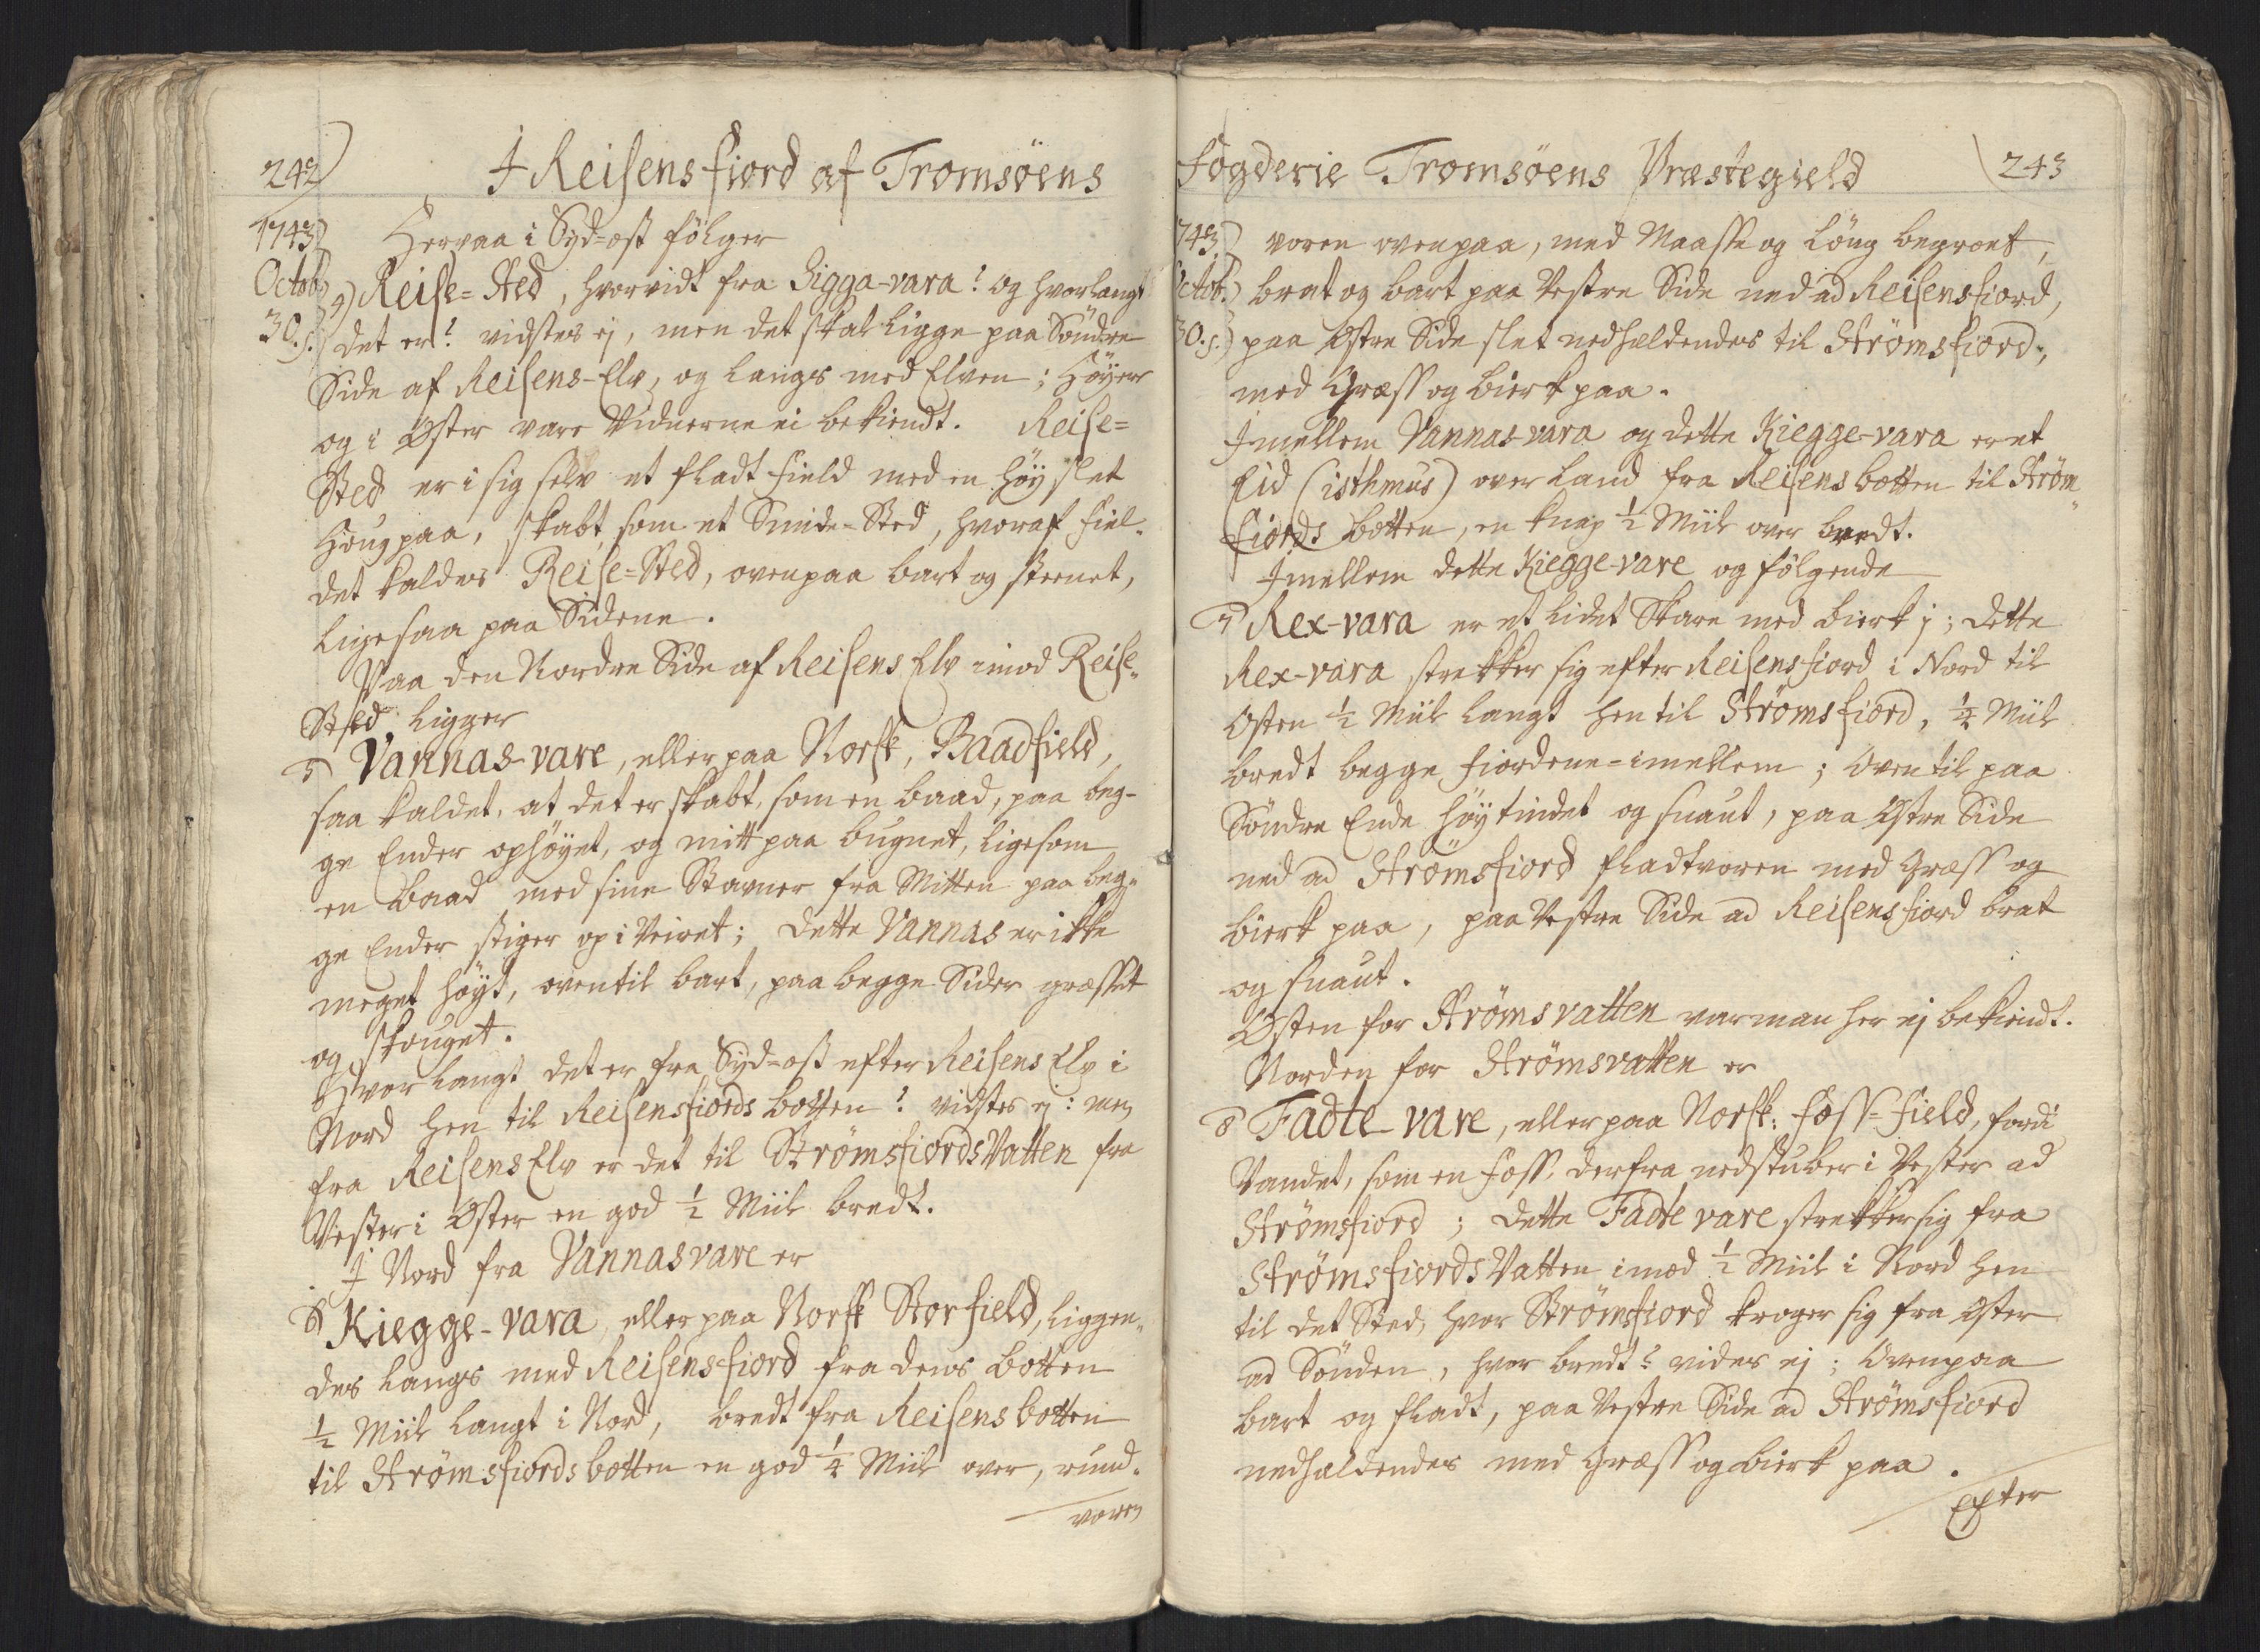 242)
I Reisensfiord af Tromsöens
1743)
Octob:)
30. s.)
Herpaa i Syd-ost fölger
4) Reise-Sted, hvorvidt fra Sigga-vara? og hvorlangt
det er? vidstes ej, men det skal ligge paa Söndre
Side af Reisens-Elv, og langs med Elven; Höyere
og i Öster vare Vidnerne ei bekiendt. Reise=
Sted er i sig selv et fladt field med en höy slet
Houg paa, skabt som et Smide-Sted, hvoraf fiel-
det kaldes Reise=Sted, ovenpaa bart og steenet,
ligesaa paa Sidene.
Paa den Nordre Side af Reisens Elv imod Reise-
Sted ligger
5 Vannas-vare, eller paa Norsk, Baadfield,
saa kaldet, at det er skabt, som en baad, paa beg-
ge Ender ophöyet, og mitt paa bugnet, ligesom
en baad med sine Stavner fra Mitten paa beg-
ge Ender stiger op i Veiret; dette Vannas er ikke
meget höyt, oventil bart, paa begge Sider græsset
og skouget.
Hvor langt det er fra Syd-ost efter Reisens Elv i
Nord hen til Reisensfiords botten? vidstes ej: men
fra Reisens Elv er det til Strömsfiords Vatten fra
Vester i Öster en god ½ Miil bredt.
I Nord fra Vannasvare er
6 Kiegge-vara, eller paa Norsk Storfield, liggen-
des langs med Reisensfiord fra dens botten
½ Miil langt i Nord, bredt fra Reisens botten
til Strömsfiords botten en god ¼ Miil over, rund-
voren
Fogderie Tromsöens Præstegield
(243
743)
ctob:)
30. s.)
voren ovenpaa, med Maasse og Löng begroet,
brat og bart paa Vestre Side ned ad Reisensfiord,
paa Östre Side slet nedhældendes til Strömsfiord,
med Græss og bierk paa.
Imellem Vannas-vara og dette Kiegge-vara er et
Eid (isthmus) over land fra Reisens botten til Ström-
fiords botten, en knap ½ Miil over bredt.
Imellem dette Kiegge-vare og fölgende
7 Rex-vara er et lidet Skare med bierk j; dette
Rex-vara strekker sig efter Reisensfiord i Nord til
Osten ½ Miil langt hen til Strömsfiord, ¼ Miil
bredt begge fiordene-imellem; Oventil paa
Söndre Ende höytindet og snaut, paa Östre Side
ned ad Strömsfiord fladtvoren med Græss og
bierk paa, paa Vestre Side ad Reisensfiord brat
og snaut.
Östen for Strömsvatten var man her ej bekiendt.
Norden for Strömsvatten er
8 Fadte-vare, eller paa Norsk: foss-field, fordi
Vandet, som en foss, derfra nedstuber i Vester ad
Strömsfiord; dette Fadte vare strekker sig fra
Strömsfiords Vatten imod ½ Miil i Nord hen
til det Sted, hvor Strömsfiord kroger sig fra Öster
ad Sönden, hvor bredt? vides ej; Ovenpaa
bart og fladt, paa Vestre Side ad Strömsfiord
nedhældendes med Græss og bierk paa.
Efter